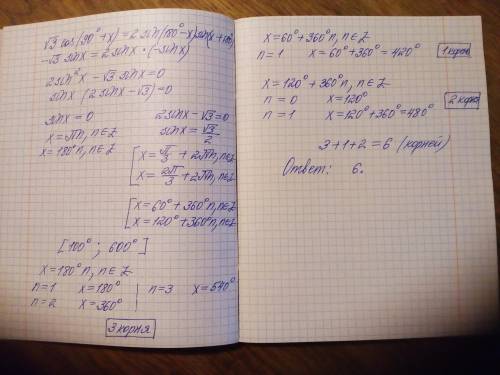 √3 cos(90°+x)=2 sin(180°-x)sin(x+180°)
-√3 sinx = 2 sinx · (-sinx)
2sin²x - √3 sinx = 0
sinx (2sinx - √3) = 0
sinx = 0
x = πn, n∈Z
x = 180°n, n∈Z
2sinx - √3 = 0
sinx = √3/2
[ x = π/3 + 2πn, n∈Z
x = 2π/3 + 2πn, n∈Z
[ x = 60° + 360°n, n∈Z
x = 120° + 360°n, n∈Z
[100° ; 600°]
x = 180°n, n∈Z
n=1 x=180° | n=3 x=540°
n=2 x=360°
3 корня
x = 60° + 360°n, n∈Z
n=1 x = 60°+360° = 420° 1 корень
x = 120° + 360°n, n∈Z
n=0 x=120°
n=1 x=120°+360°=480° 2 корня
3+1+2=6 (корней)
Ответ: 6.